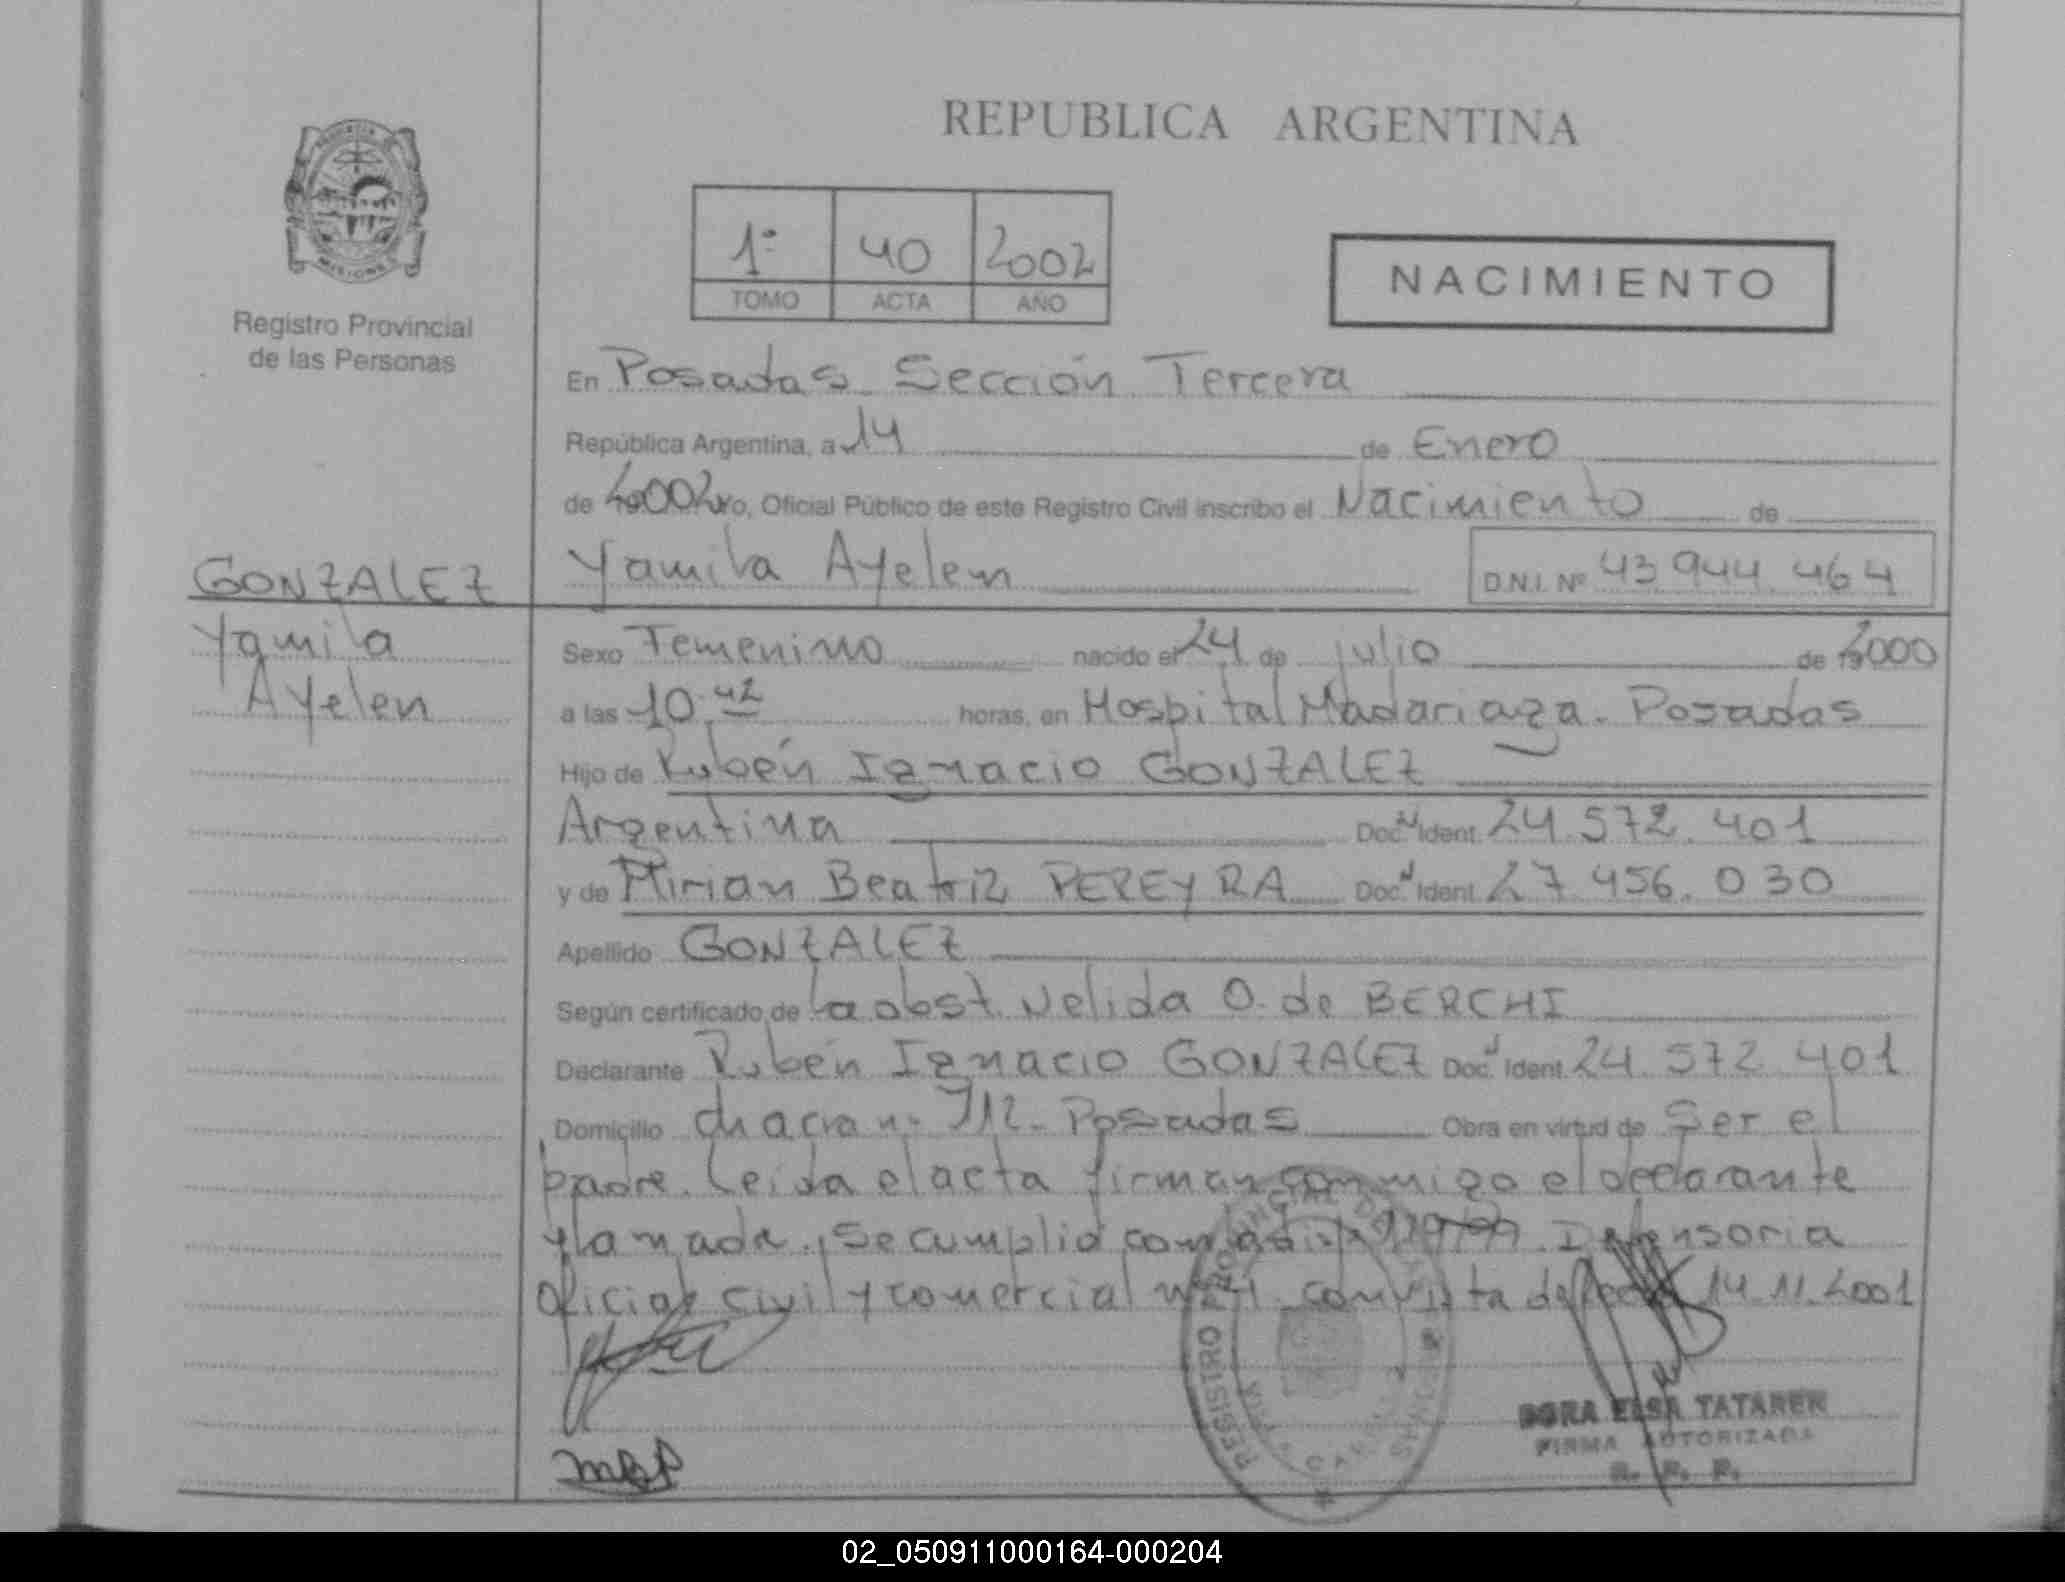 REPUBLICA ARGENTINA
PROVINCIA
MISIONES
Registro Provincial
de las Personas
1º 40 2002
TOMO ACTA AÑO
NACIMIENTO
En Posadas Sección Tercera
República Argentina, a 14 de Enero
de 2002 yo, Oficial Público de este Registro Civil inscribo el Nacimiento de
GONZALEZ
Yamila Ayelen
D.N.I. Nº 43.944.464
Yamila
Ayelen
Sexo Femenino nacido el 24 de julio de 2000
a las 10.42 horas, en Hospital Madariaga. Posadas
Hijo de Rubén Ignacio GONZALEZ
Argentina Doc. Ident. 24.572.401
y de Mirian Beatriz PEREYRA Doc. Ident. 27.456.030
Apellido GONZALEZ
Según certificado de la obst. Nelida O. de BERCHI
Declarante Rubén Ignacio GONZALEZ Doc. Ident. 24.572.401
Domicilio chacra n· 112- Posadas Obra en virtud de Ser el
padre. Leida el acta firman conmigo el declarante
y la madre. Se cumplió con Defensoria
Oficial Civil y comercial con vista de 14.11.2001
REGISTRO PROVINCIAL DE LAS PERSONAS
DORA ELSA TATAREN
FIRMA AUTORIZADA
R. P. P.
02_050911000164-000204